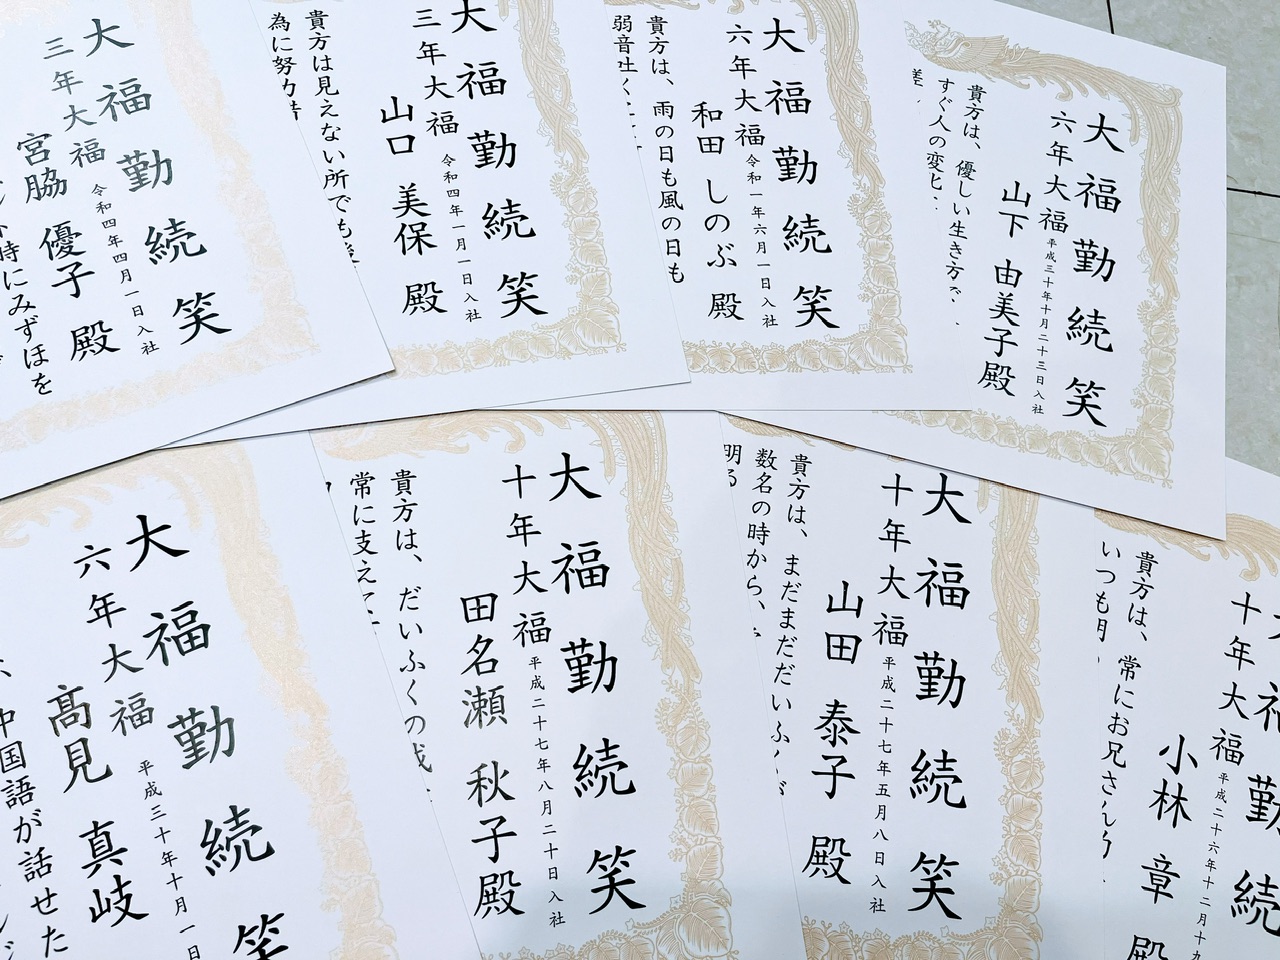 大福勤続笑
六年大福
平成三十年十月二十三日入社
山下 由美子殿
貴方は、優しい生き方で
すぐ人の変化
大福勤続笑
六年大福
令和一年六月一日入社
和田 しのぶ 殿
貴方は、雨の日も風の日も
弱音吐く
大福勤続笑
三年大福
令和四年一月一日入社
山口 美保 殿
貴方は見えない所でも
為に努力
大福勤続笑
三年大福
令和四年四月一日入社
宮脇 優子 殿
時にみずほを
十年大福
平成二十六年十二月十
小林 章 殿
勤続
貴方は、常にお兄さん
いつも明
大福勤続笑
十年大福
平成二十七年五月八日入社
山田 泰子 殿
貴方は、まだまだだいふく
数名の時から、
明る
大福勤続笑
十年大福
平成二十七年八月二十日入社
田名瀬 秋子殿
貴方は、だいふくの
常に支えて
大福勤続笑
六年大福
平成三十年十月一日
髙見 真岐
中国語が話せた